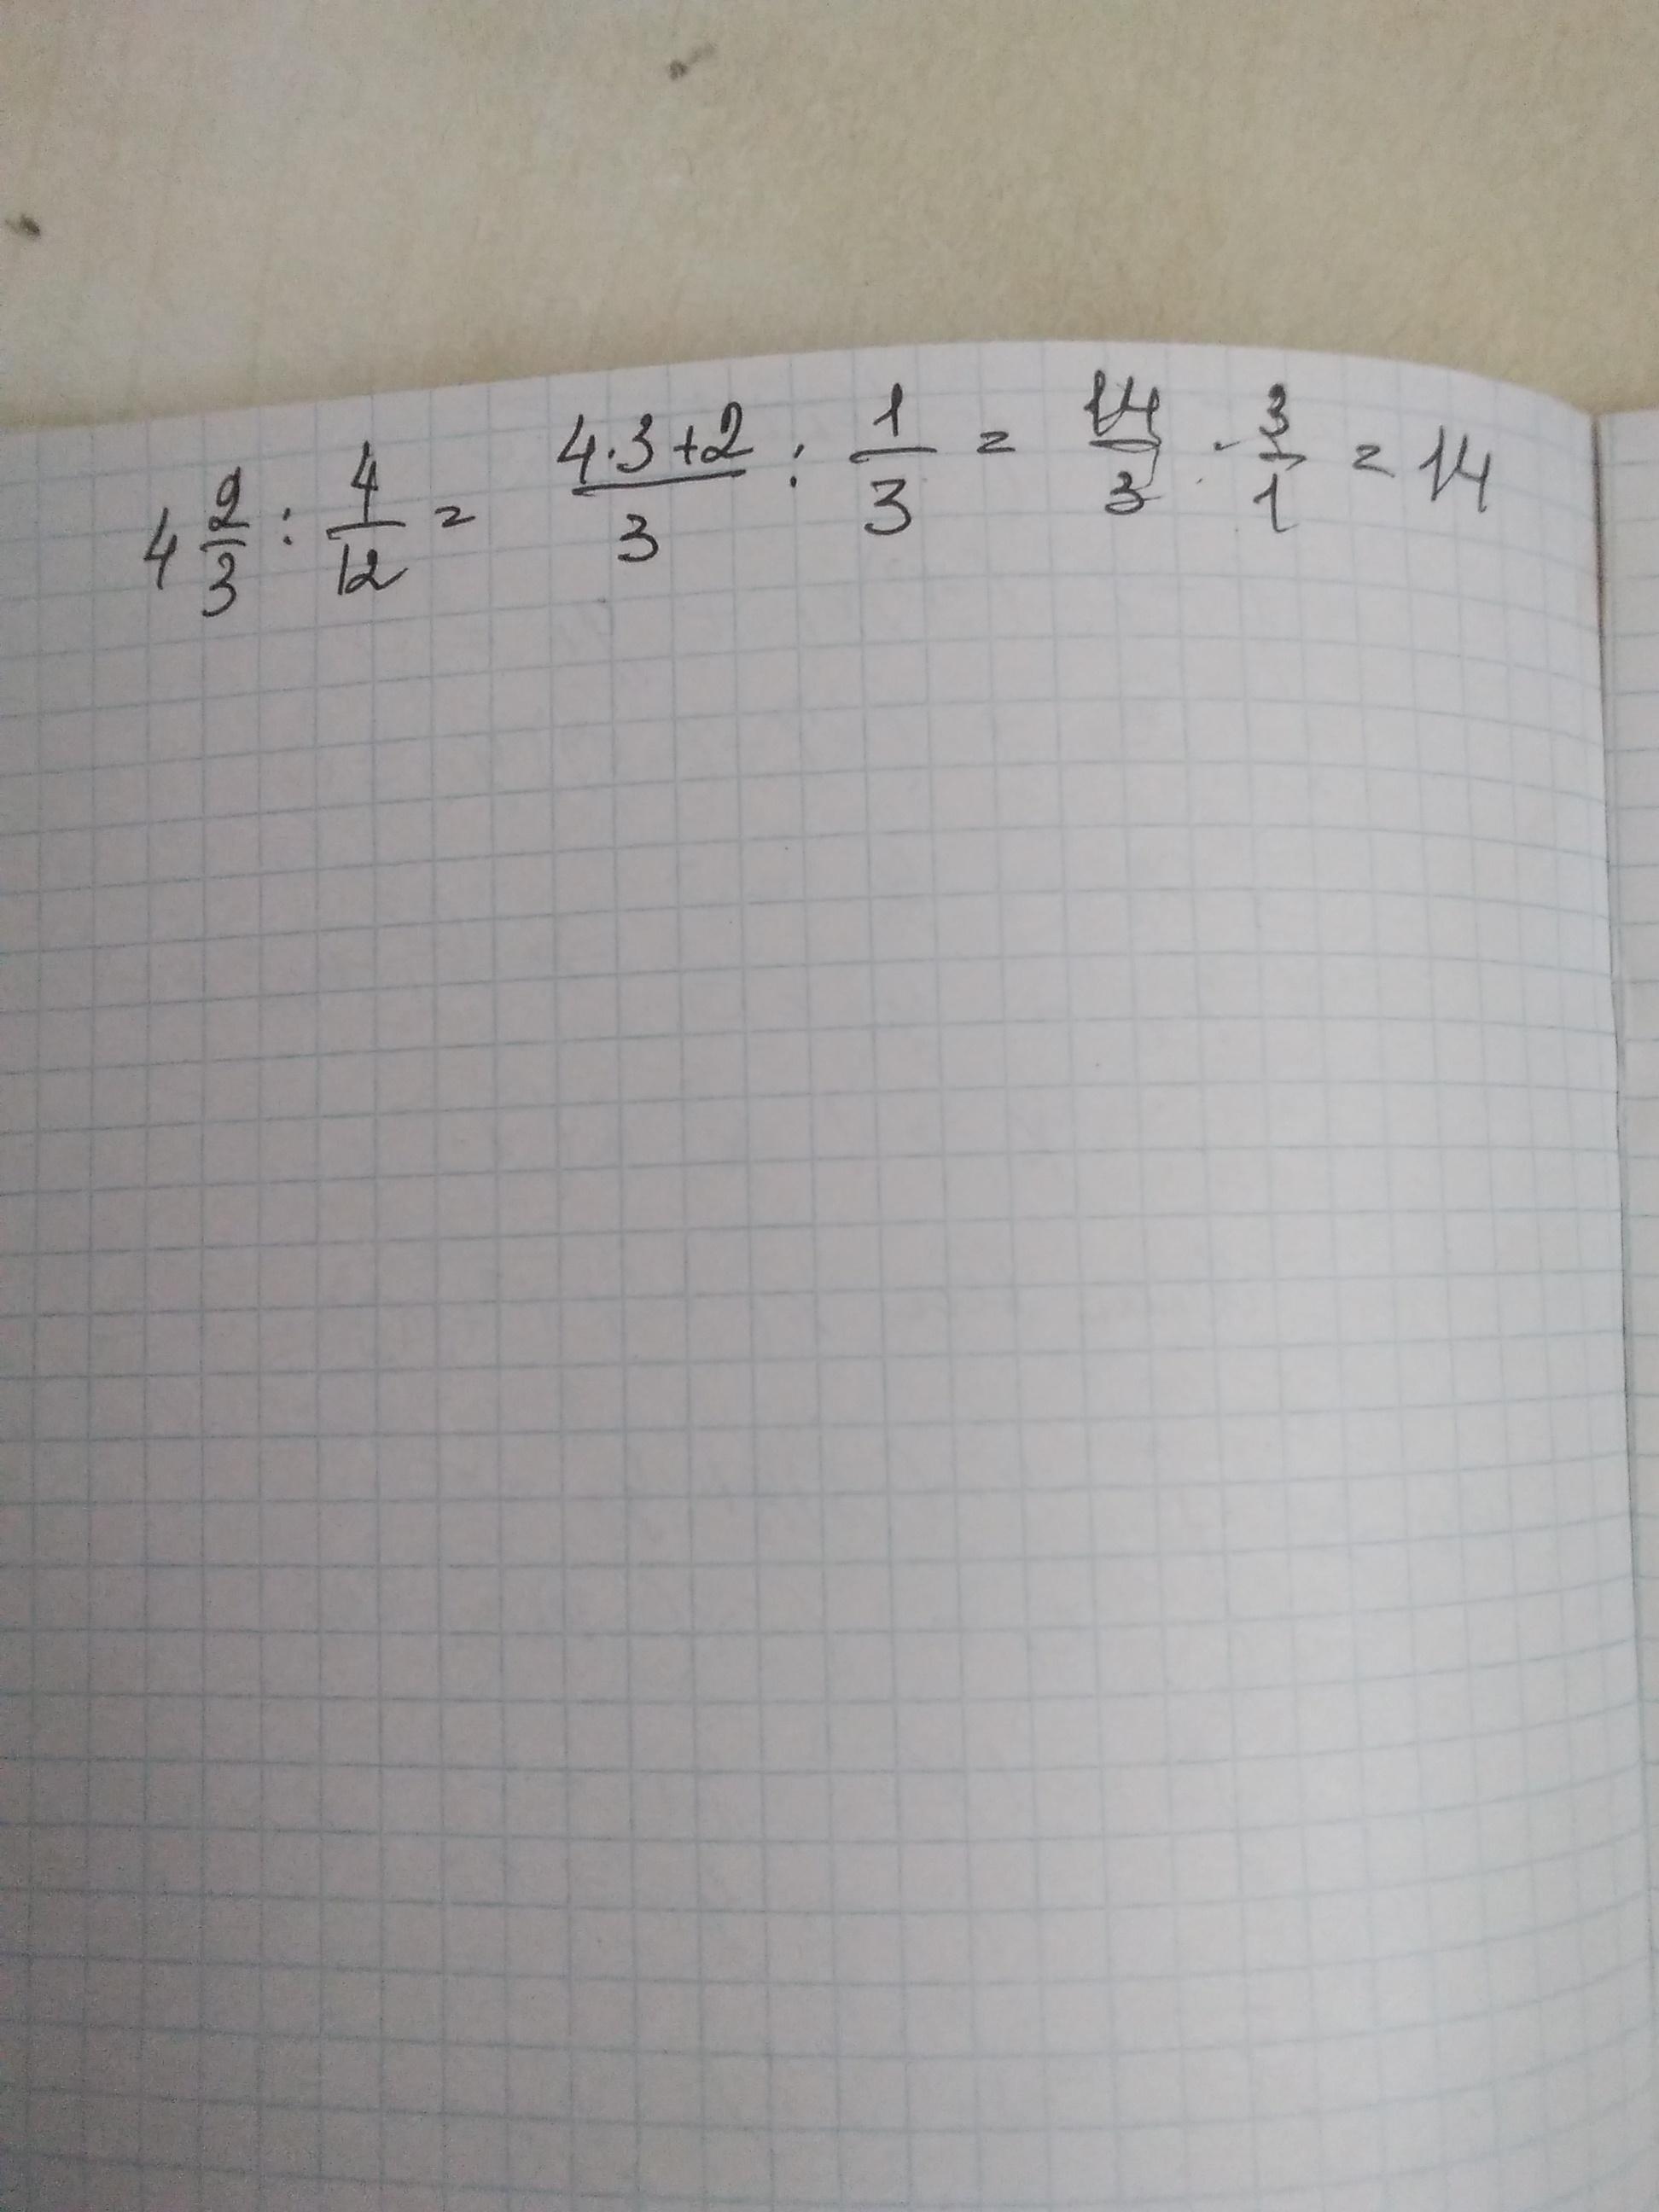 4 2/3 : 4/12 = (4·3+2)/3 : 1/3 = 14/3 · 3/1 = 14